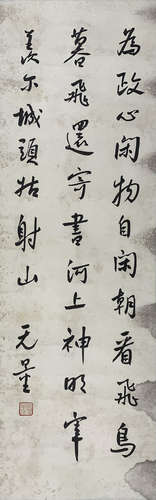 為政心閑物自閑朝看飛鳥
暮飛還寄書河上神明宰
羨尔城頭姑射山 无量